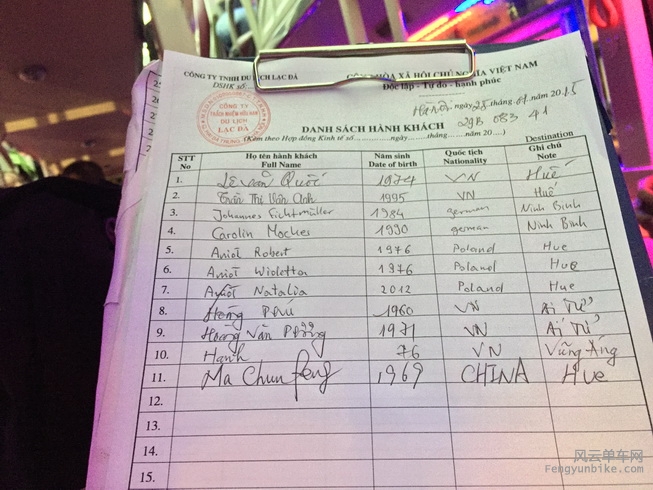 CÔNG TY TNHH DU LỊCH LẠC ĐÀ
CỘNG HÒA XÃ HỘI CHỦ NGHĨA VIỆT NAM
DSHK số:
Độc lập - Tự do - hạnh phúc
CÔNG TY
TRÁCH NHIỆM HỮU HẠN
DU LỊCH
LẠC ĐÀ
Hà Nội, ngày 28 tháng 01 năm 2015
DANH SÁCH HÀNH KHÁCH
29B 083 41
(Kèm theo Hợp đồng Kinh tế số......ngày......tháng......năm 20....)
Destination
STT No
Họ tên hành khách Full Name
Năm sinh Date of birth
Quốc tịch Nationality
Ghi chú Note
1. Lê Văn Quốc 1974 VN Huế
2. Trần Thị Vân Anh 1995 VN Huế
3. Johannes 1984 german Ninh Binh
4. Carolin Mockes 1990 german Ninh Binh
5. Anioł Robert 1976 Poland Hue
6. Anioł Wioletta 1976 Poland Hue
7. Anioł Natalia 2012 Poland Hue
8. Hoàng Phú 1960 VN Ái Tử
9. Hoàng Văn 1971 VN Ái Tử
10. Hạnh 76 VN Vũng Áng
11. Ma Chunfeng 1969 CHINA Hue
12.
13.
14.
15.
风云单车网
Fengyunbike.com